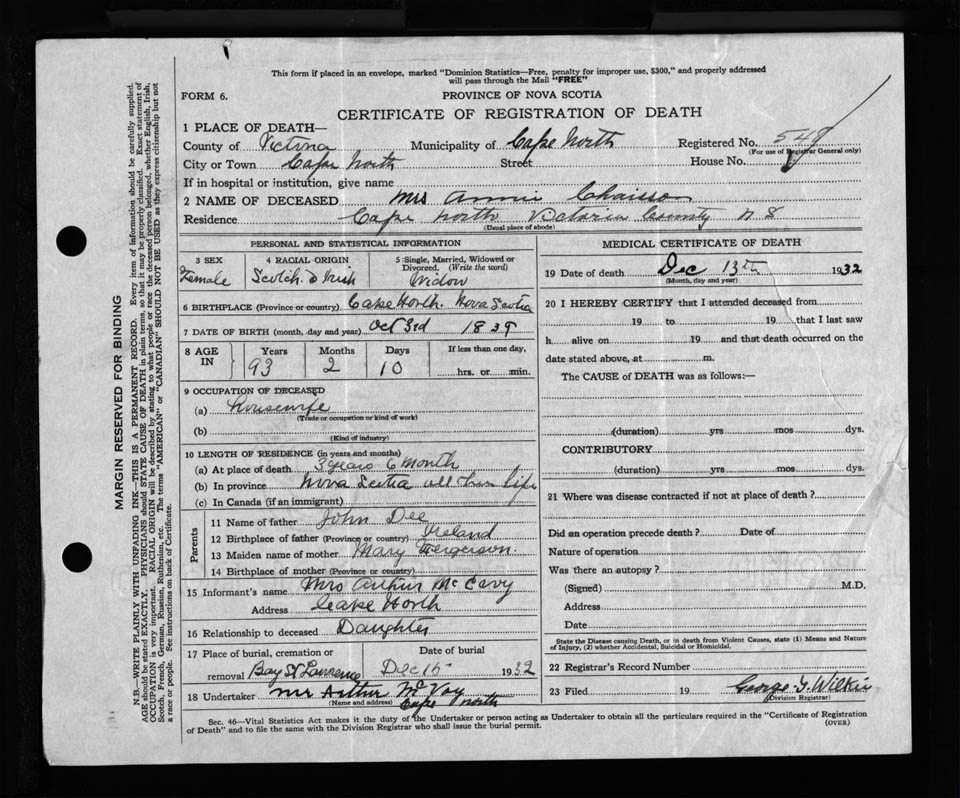 This form if placed in an envelope, marked "Dominion Statistics—Free, penalty for improper use, $300," and properly addressed
will pass through the Mail "FREE"
FORM 6.
PROVINCE OF NOVA SCOTIA
CERTIFICATE OF REGISTRATION OF DEATH
1 PLACE OF DEATH—
County of Victoria Municipality of Cape North Registered No. 548
(For use of Registrar General only)
City or Town Cape North Street House No.
If in hospital or institution, give name
2 NAME OF DECEASED Mrs Annie Chaisson
Residence Cape North Victoria County N S
(Usual place of abode)
PERSONAL AND STATISTICAL INFORMATION
3 SEX 4 RACIAL ORIGIN 5 Single, Married, Widowed or
Divorced. (Write the word)
Female Scotch & Irish Widow
6 BIRTHPLACE (Province or country) Cape North. Nova Scotia
7 DATE OF BIRTH (month, day and year) Oct 3rd 1839
8 AGE IN Years Months Days If less than one day,
93 2 10 hrs. or min.
9 OCCUPATION OF DECEASED
(a) Housewife
(Trade or occupation or kind of work)
(b)
(Kind of industry)
10 LENGTH OF RESIDENCE (in years and months)
(a) At place of death 3 years 6 Month
(b) In province Nova Scotia all life
(c) In Canada (if an immigrant)
Parents
11 Name of father John Dee
12 Birthplace of father (Province or country) Ireland
13 Maiden name of mother Mary Fergerson.
14 Birthplace of mother (Province or country)
15 Informant's name Mrs Arthur McEavy
Address Cape North
16 Relationship to deceased Daughter
17 Place of burial, cremation or Date of burial
removal Bay St Lawrence Dec 15 1932
18 Undertaker Mr Arthur McVay
(Name and address) Cape North
MEDICAL CERTIFICATE OF DEATH
19 Date of death Dec 13th 1932
(Month, day and year)
20 I HEREBY CERTIFY that I attended deceased from
19 to 19 that I last saw
h alive on 19 and that death occurred on the
date stated above, at m.
The CAUSE of DEATH was as follows:—
(duration) yrs mos dys.
CONTRIBUTORY
(duration) yrs mos dys.
21 Where was disease contracted if not at place of death?
Did an operation precede death? Date of
Nature of operation
Was there an autopsy?
(Signed) M.D.
Address
Date
State the Disease causing Death, or in death from Violent Causes, state (1) Means and Nature
of Injury, (2) whether Accidental, Suicidal or Homicidal.
22 Registrar's Record Number
23 Filed 19 George G. Wilkie
Division Registrar)
Sec. 46—Vital Statistics Act makes it the duty of the Undertaker or person acting as Undertaker to obtain all the particulars required in the "Certificate of Registration
of Death" and to file the same with the Division Registrar who shall issue the burial permit.
(OVER)
MARGIN RESERVED FOR BINDING
N.B.—WRITE PLAINLY WITH UNFADING INK—THIS IS A PERMANENT RECORD. Every item of information should be carefully supplied.
AGE should be stated EXACTLY. PHYSICIANS should STATE CAUSE OF DEATH in plain terms, so that it may be properly classified. Exact statement of
OCCUPATION is very important. RACIAL ORIGIN will be described by stating to what people or race the deceased person belonged, whether English, Irish,
Scotch, French, German, Russian, Ruthenian, etc. The terms "AMERICAN" or "CANADIAN" SHOULD NOT BE USED as they express citizenship but not
a race or people. See instructions on back of Certificate.